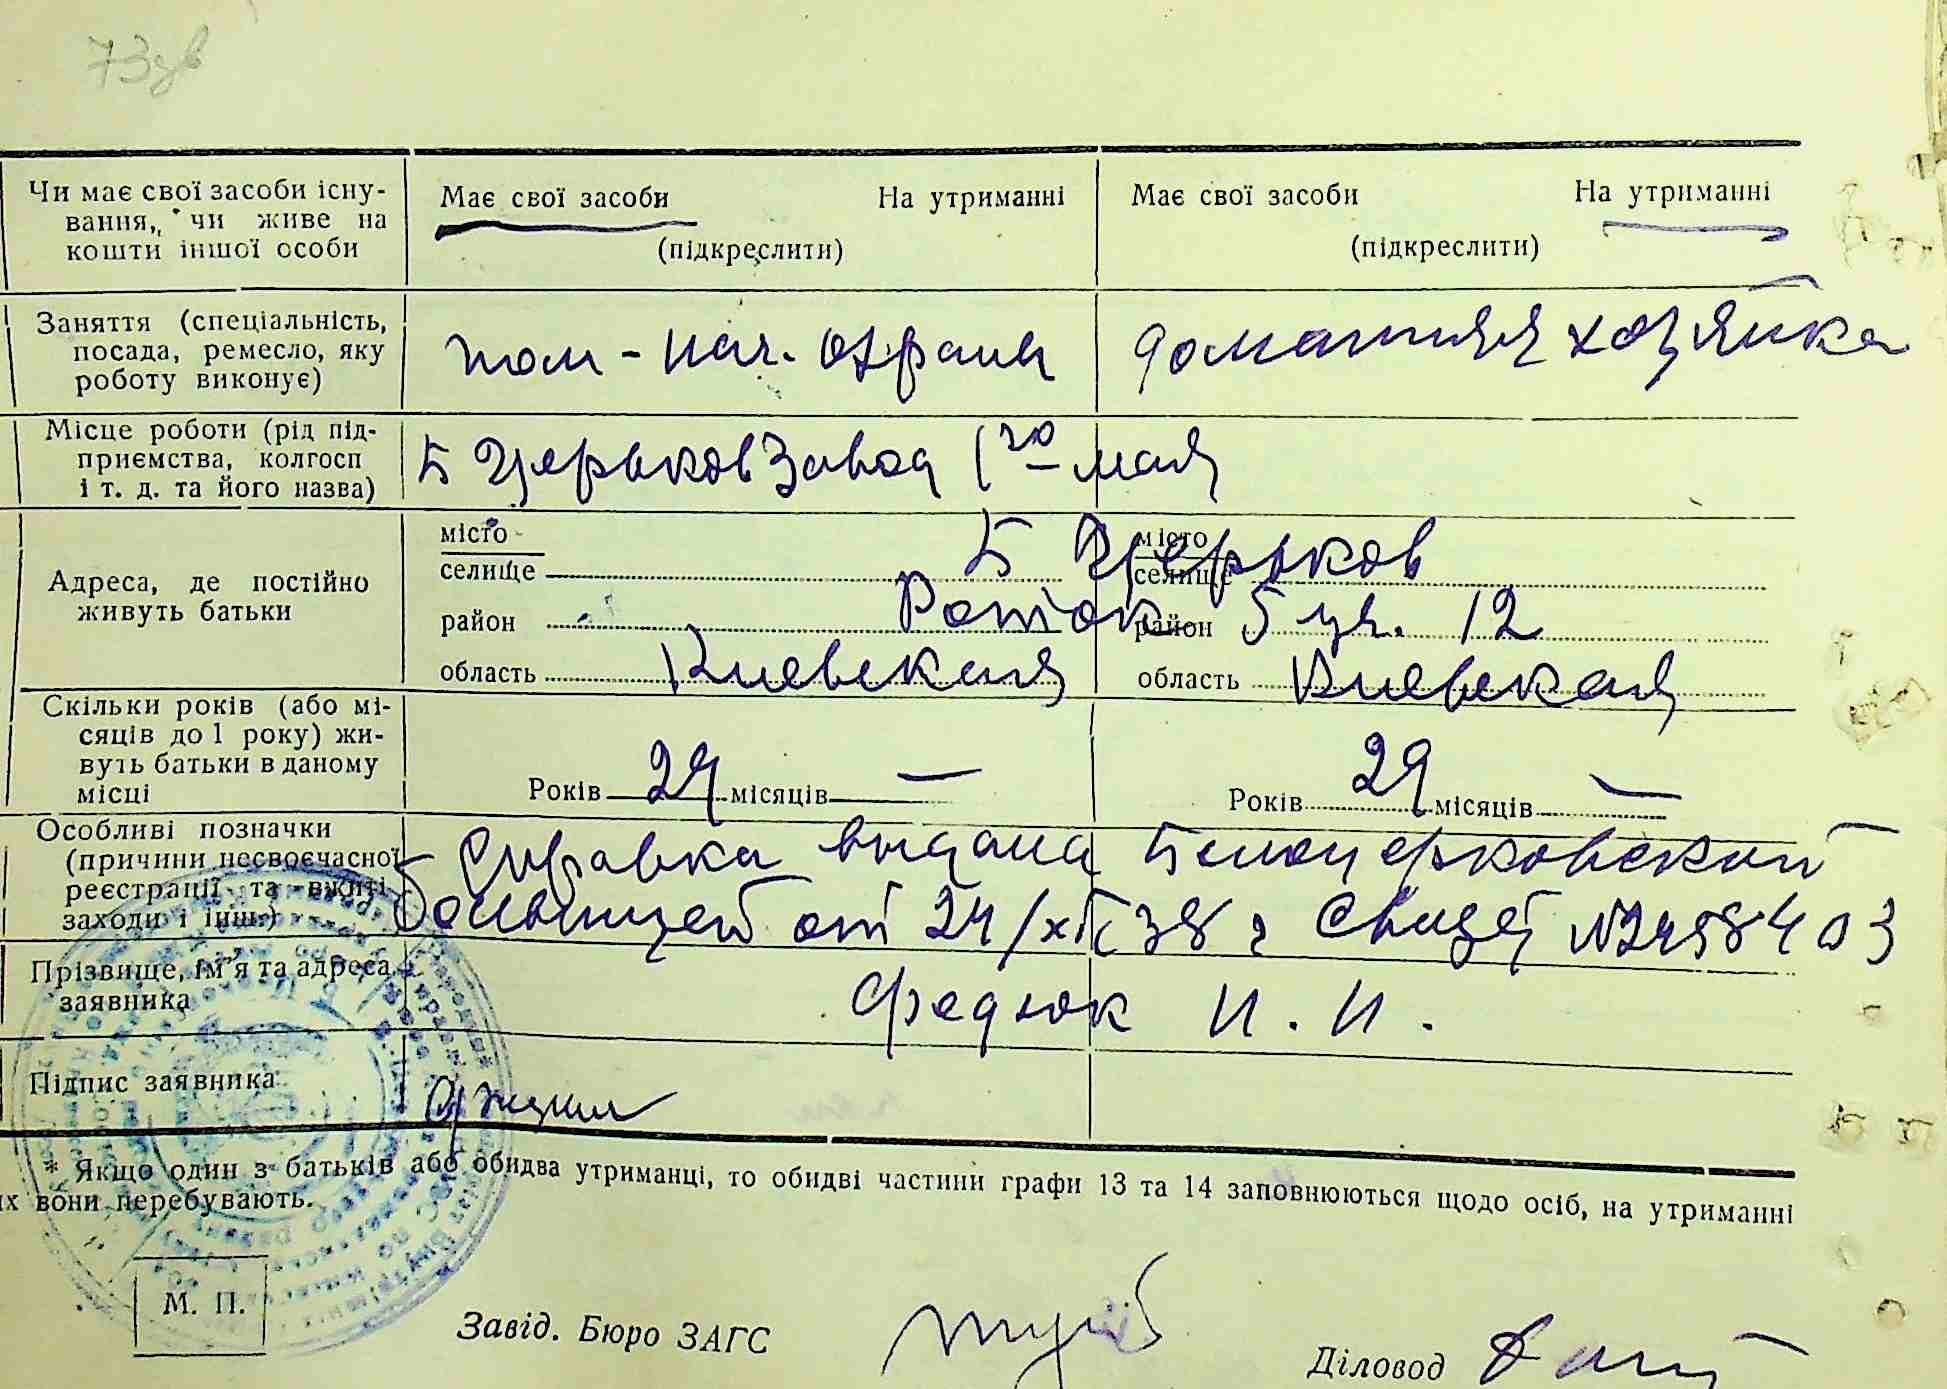 73зв
Чи має свої засоби існу-
вання, чи живе на
кошти іншої особи
Має свої засоби На утриманні
(підкреслити)
Має свої засоби На утриманні
(підкреслити)
Заняття (спеціальність,
посада, ремесло, яку
роботу виконує)
пом-нач. охраны
домашняя хозяйка
Місце роботи (рід під-
приємства, колгосп
і т. д. та його назва)
Б Церьков Завод 1го мая
Адреса, де постійно
живуть батьки
місто
селище
район
область Киевская
Б Церьков
місто
селище
район 5 уч. 12
область Киевская
Скільки років (або мі-
сяців до 1 року) жи-
вуть батьки в даному
місці
Років 29 місяців —
Років 29 місяців —
Особливі позначки
(причини несвоєчасної
реєстрації та вжиті
заходи і інш.)
Справка выдана Белоцерковской
больницей от 24/XII 38 г
Прізвище, ім'я та адреса
заявника
Федюк И. И.
Підпис заявника
* Якщо один з батьків або обидва утриманці, то обидві частини графи 13 та 14 заповнюються щодо осіб, на утриманні
их вони перебувають.
М. П.
Завід. Бюро ЗАГС
Діловод